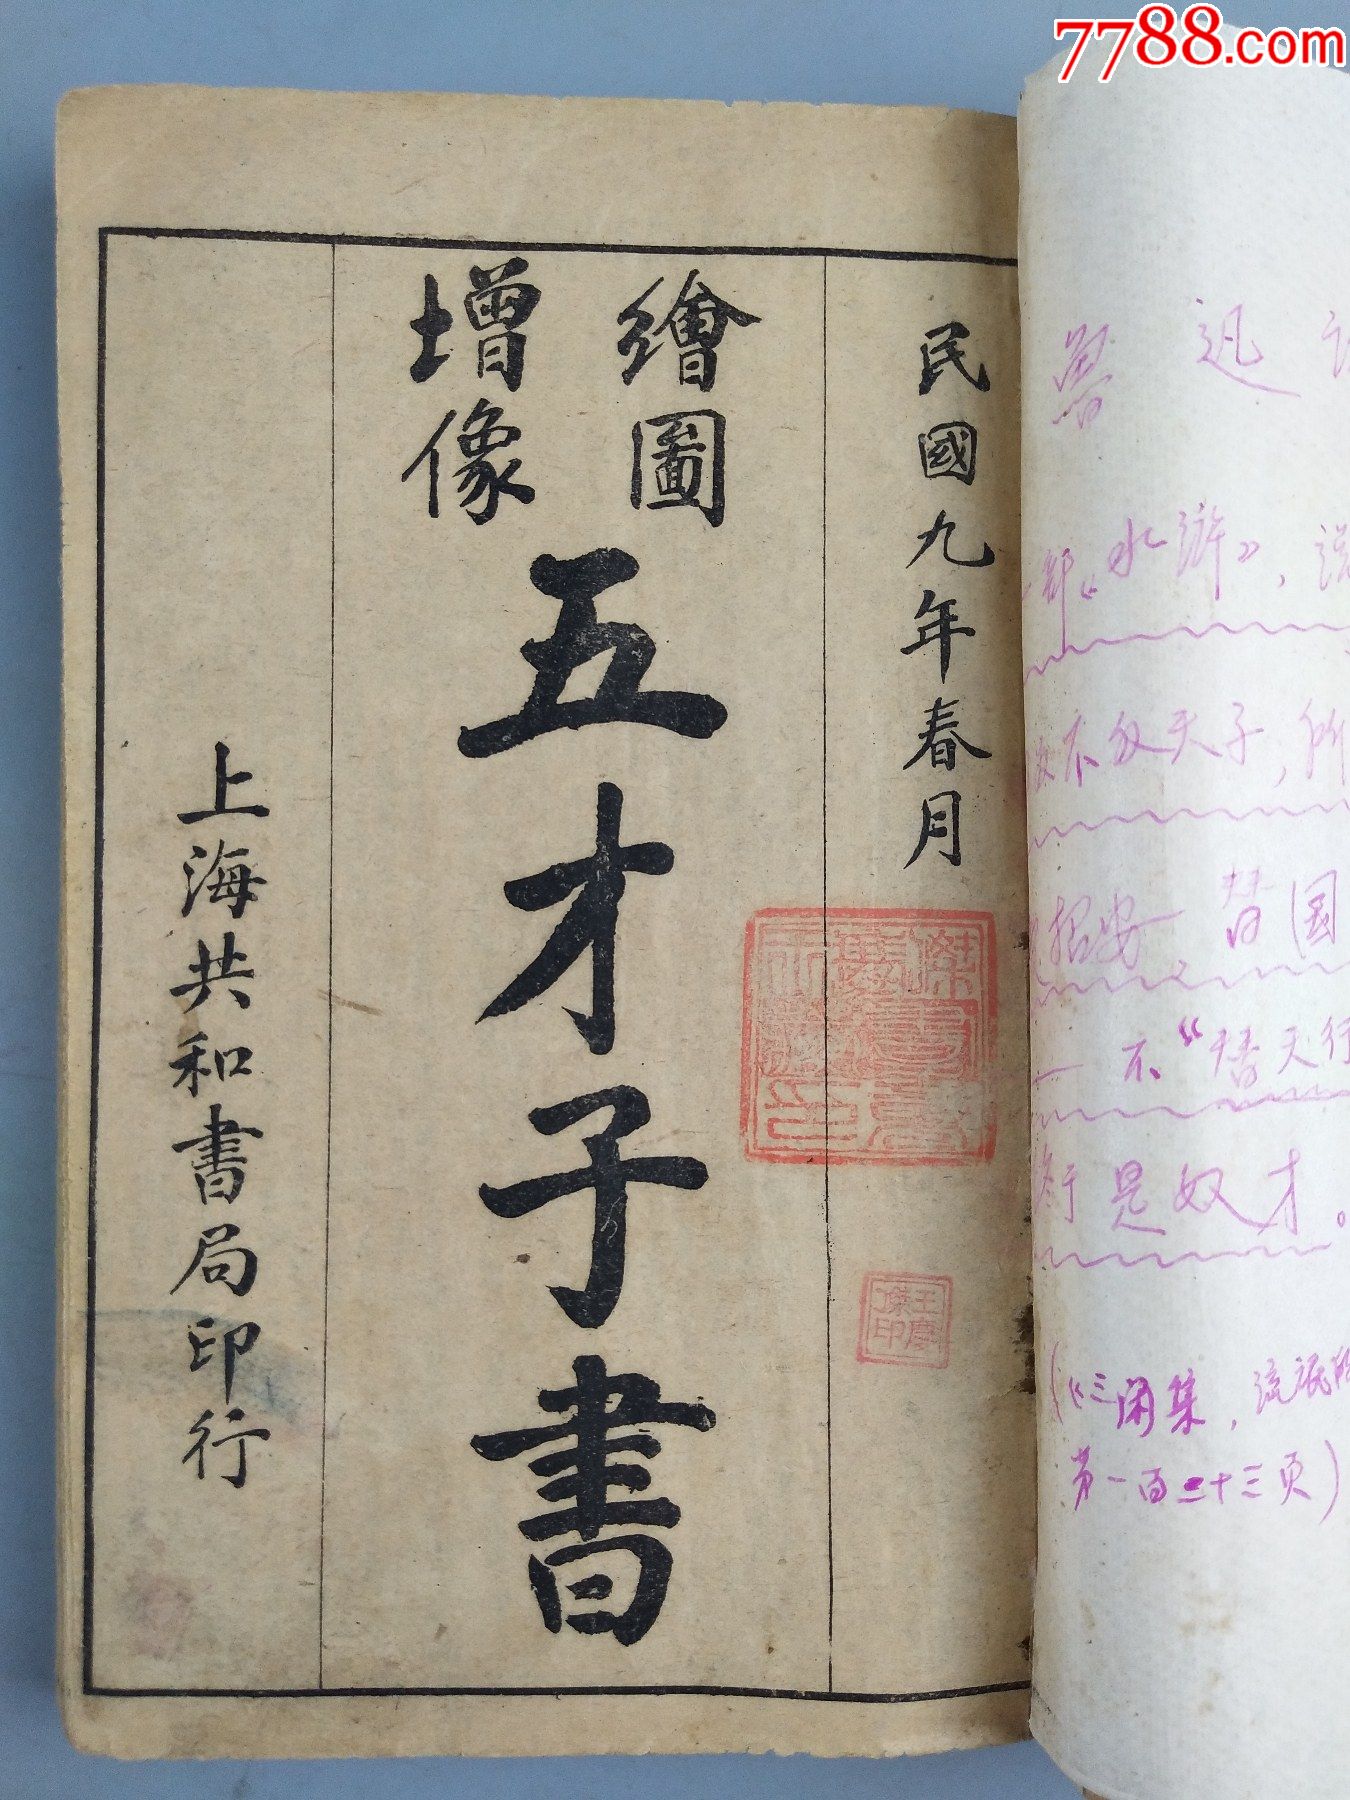 7788.com
民國九年春月
繪圖
增像
五才子書
上海共和書局印行
王唐
傑印
鲁迅
一部《水浒》,说
不反天子,所
招安,替国
不“替天行
是奴才。
(《三闲集,流氓
第一百二十三页)